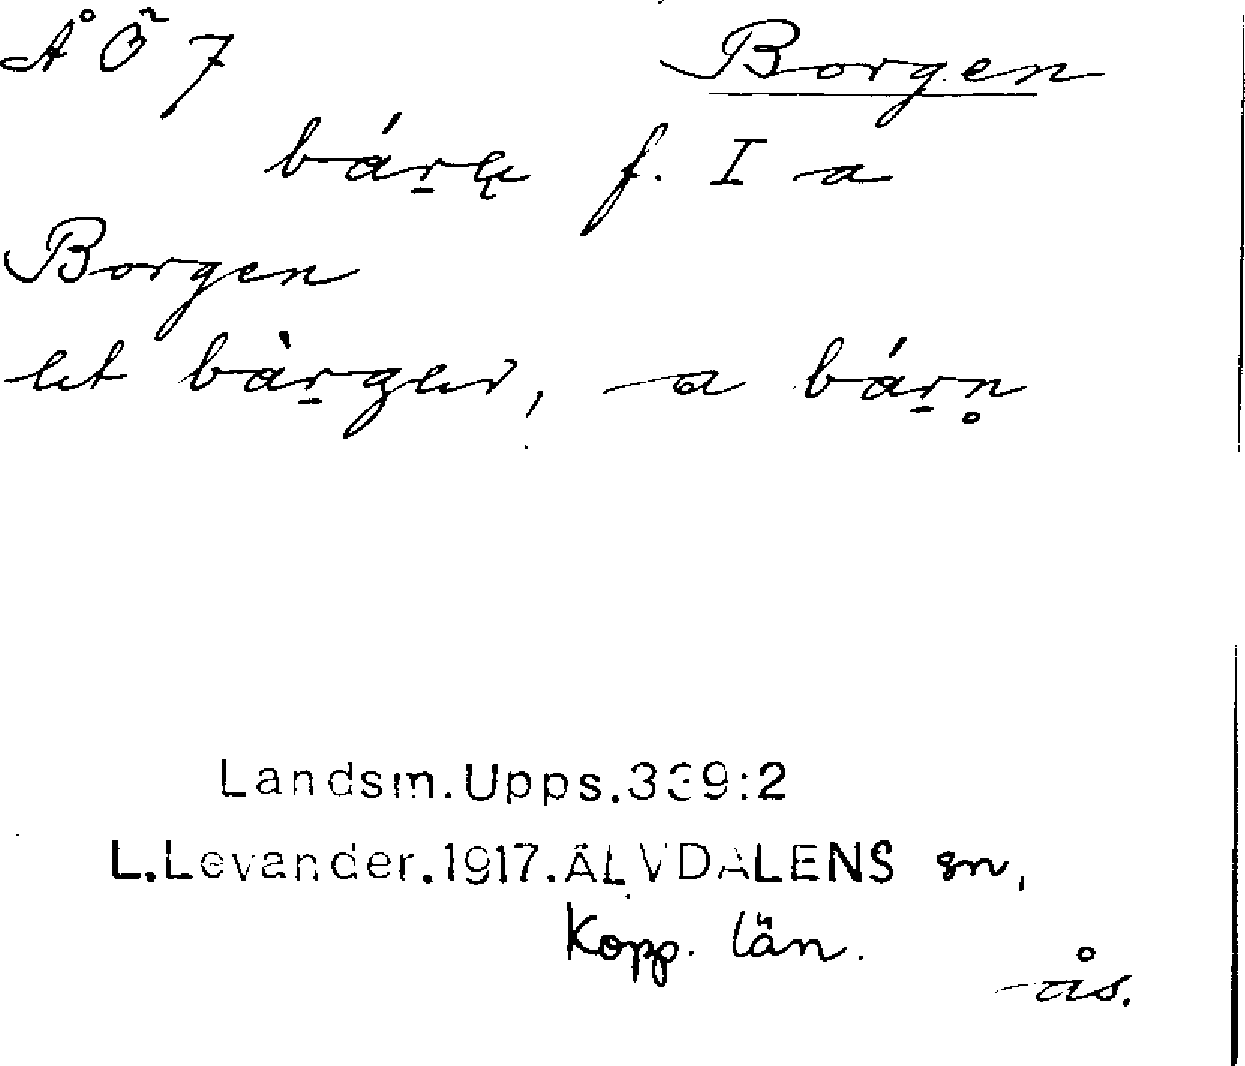 Å Ö 7 Borgen
f. I a
Borgen
let bàr̠ger, -a bár̠n̥
Landsm.Upps.339:2
L.Levander.1917.ÄLVDALENS sn,
Kopp. län.
-ås.